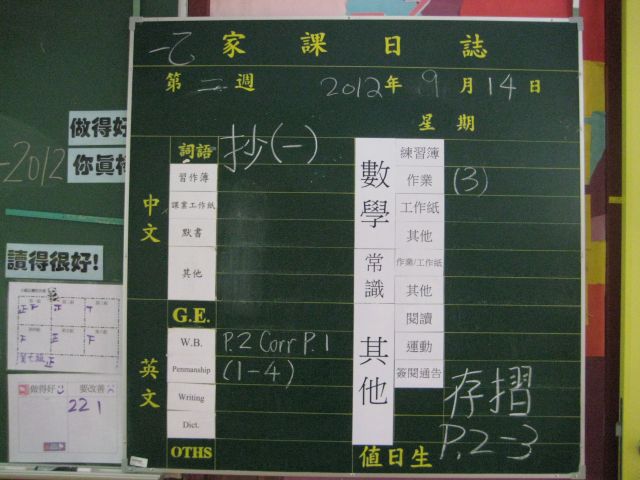 一乙 家課日誌
第二週 2012年9月14日
星期
中文
詞語 抄(一)
習作簿
課業工作紙
默書
其他
G.E.
英文
W.B. P.2 Corr P.1
Penmanship (1-4)
Writing
Dict.
OTHS
數學
練習簿
作業 (3)
工作紙
其他
常識
作業/工作紙
其他
其他
閱讀
運動
簽閱通告 存摺
P.2-3
值日生
做得好
-2012
你真棒
讀得很好!
做得好 要改善
221